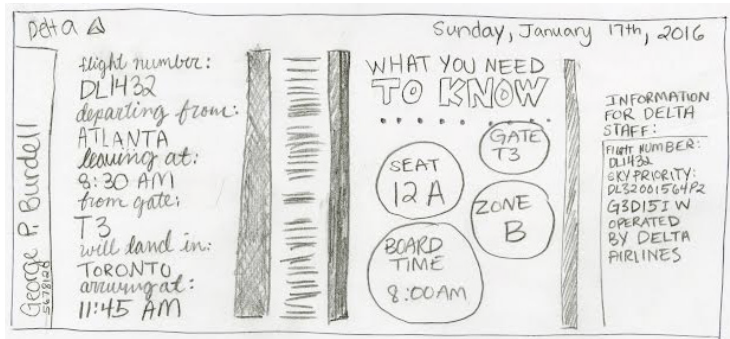 Delta
Sunday, January 17th, 2016
George P. Burdell
5678128
flight number:
DL1432
departing from:
ATLANTA
leaving at:
8:30 AM
from gate:
T3
will land in:
TORONTO
arriving at:
11:45 AM
WHAT YOU NEED
TO KNOW
GATE
T3
SEAT
12A
ZONE
B
BOARD
TIME
8:00AM
INFORMATION
FOR DELTA
STAFF:
FLIGHT NUMBER:
DL1432
SKY PRIORITY:
DL32001564P2
G3D15I W
OPERATED
BY DELTA
AIRLINES